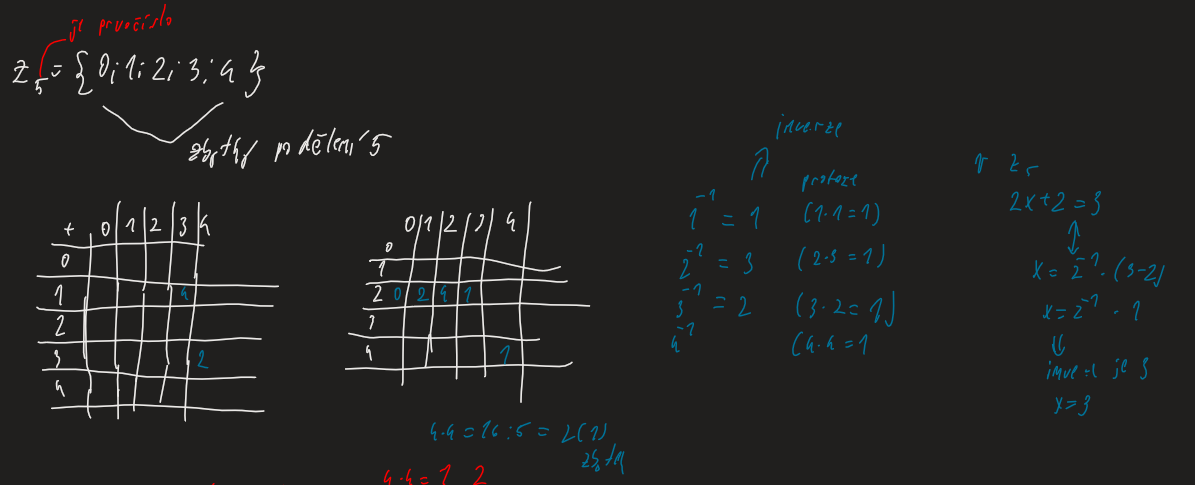 je prvočíslo
Z5 = {0; 1; 2; 3; 4}
zbytky po dělení 5
+ 0 1 2 3 4
0
1 4
2
3 2
4
0 1 2 3 4
0
1
2 0 2 4 1
3
4 1
4·4 = 16 : 5 = 2(1)
zbytek
4·4 = 1 2
inverze
⇑
protože
1⁻¹ = 1 (1·1 = 1)
2⁻¹ = 3 (2·3 = 1)
3⁻¹ = 2 (3·2 = 1)
4⁻¹ (4·4 = 1
v Z5
2x+2 = 3
⇕
x = 2⁻¹ · (3-2)
x = 2⁻¹ · 1
⇓
je 3
x = 3